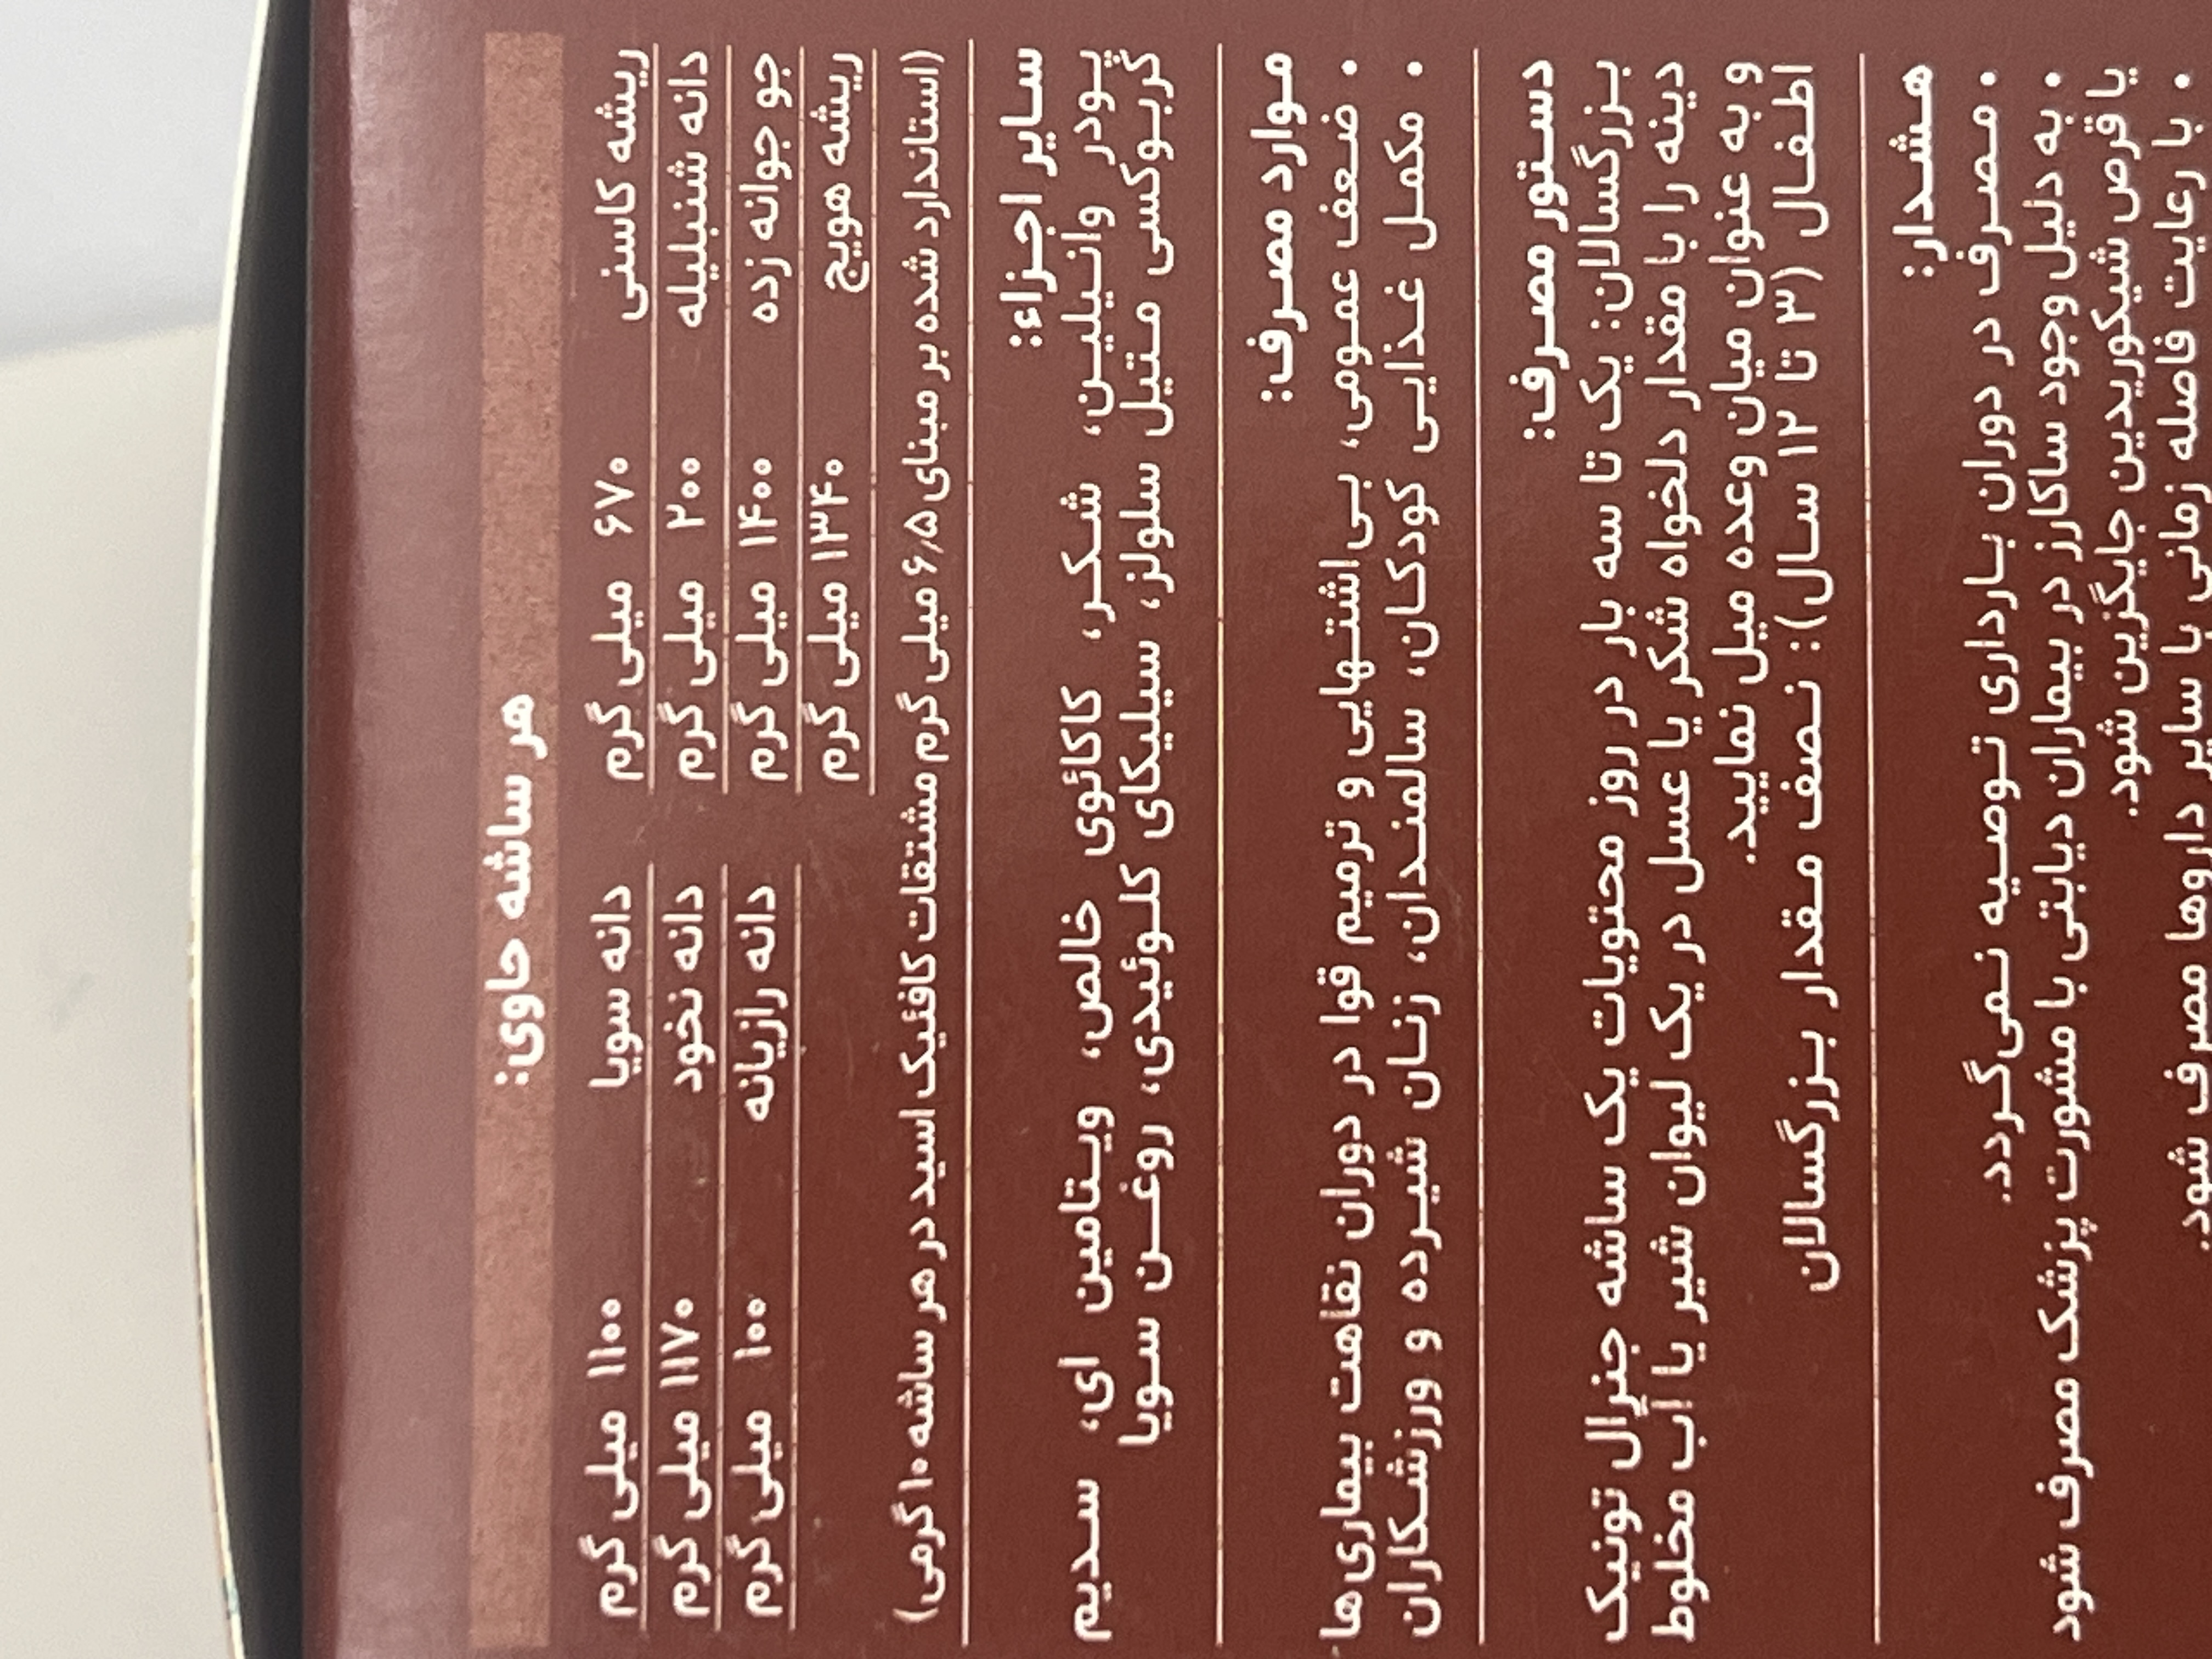 هر ساشه حاوی:
ریشه کاسنی ۶۷۰ میلی گرم دانه سویا ۱۱۰۰ میلی گرم
دانه شنبلیله ۲۰۰ میلی گرم دانه نخود ۱۱۷۰ میلی گرم
جو جوانه زده ۱۴۰۰ میلی گرم دانه رازیانه ۱۰۰ میلی گرم
ریشه هویج ۱۳۴۰ میلی گرم
(استاندارد شده بر مبنای ۶٫۵ میلی گرم مشتقات کافئیک اسید در هر ساشه ۱۰ گرمی)
سایر اجزاء:
پودر وانیلین، شکر، کاکائوی خالص، ویتامین ای، سدیم
کربوکسی متیل سلولز، سیلیکای کلوئیدی، روغن سویا
موارد مصرف:
• ضعف عمومی، بی‌اشتهایی و ترمیم قوا در دوران نقاهت بیماری‌ها
• مکمل غذایی کودکان، سالمندان، زنان شیرده و ورزشکاران
دستور مصرف:
بزرگسالان: یک تا سه بار در روز محتویات یک ساشه جنرال تونیک
دینه را با مقدار دلخواه شکر یا عسل در یک لیوان شیر یا آب مخلوط
و به عنوان میان وعده میل نمایید.
اطفال (۳ تا ۱۲ سال): نصف مقدار بزرگسالان
هشدار:
• مصرف در دوران بارداری توصیه نمی‌گردد.
• به دلیل وجود ساکارز در بیماران دیابتی با مشورت پزشک مصرف شود
یا قرص شیکوریدین جایگزین شود.
• با رعایت فاصله زمانی با سایر داروها مصرف شود.